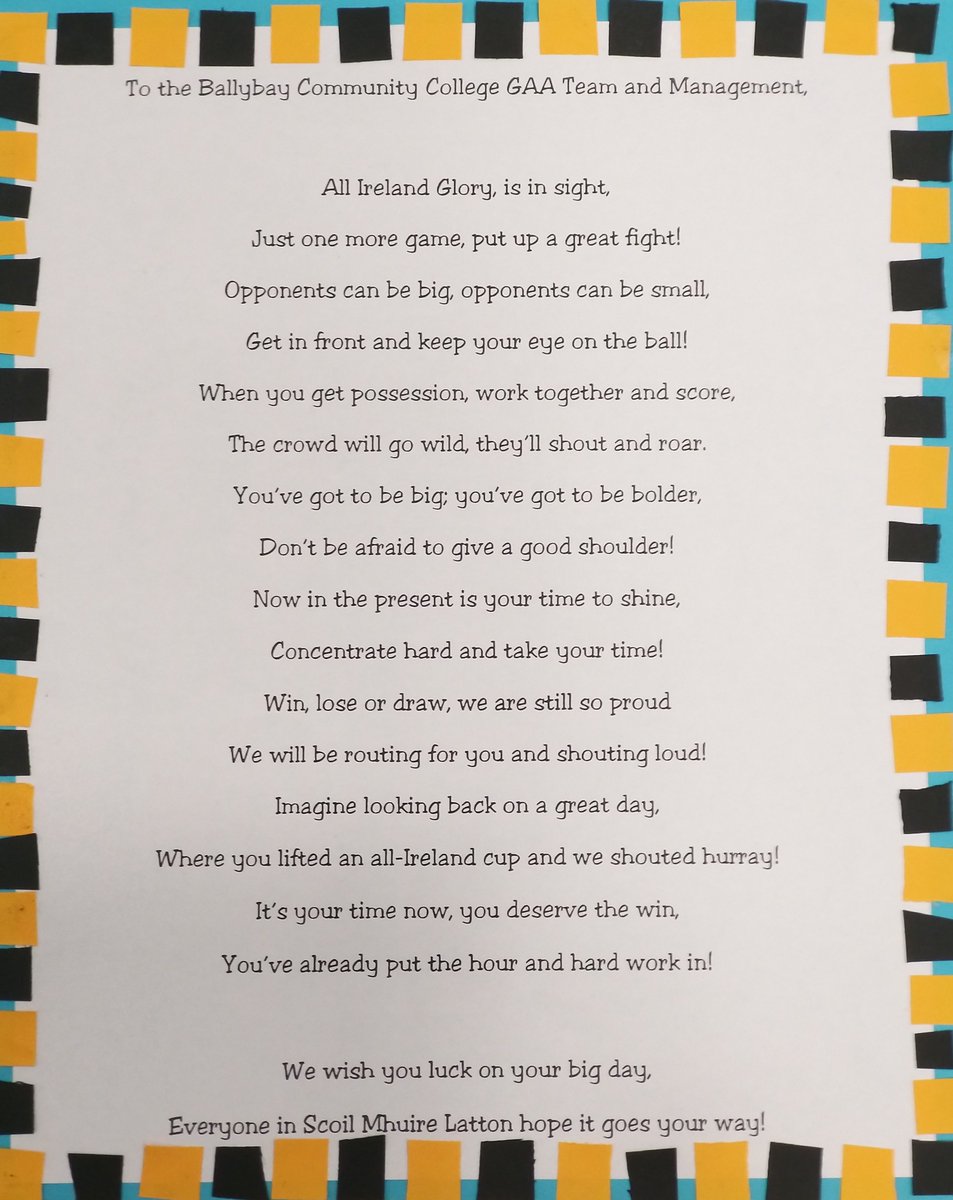 To the Ballybay Community College GAA Team and Management,
All Ireland Glory, is in sight,
Just one more game, put up a great fight!
Opponents can be big, opponents can be small,
Get in front and keep your eye on the ball!
When you get possession, work together and score,
The crowd will go wild, they'll shout and roar.
You've got to be big; you've got to be bolder,
Don't be afraid to give a good shoulder!
Now in the present is your time to shine,
Concentrate hard and take your time!
Win, lose or draw, we are still so proud
We will be routing for you and shouting loud!
Imagine looking back on a great day,
Where you lifted an all-Ireland cup and we shouted hurray!
It's your time now, you deserve the win,
You've already put the hour and hard work in!
We wish you luck on your big day,
Everyone in Scoil Mhuire Latton hope it goes your way!